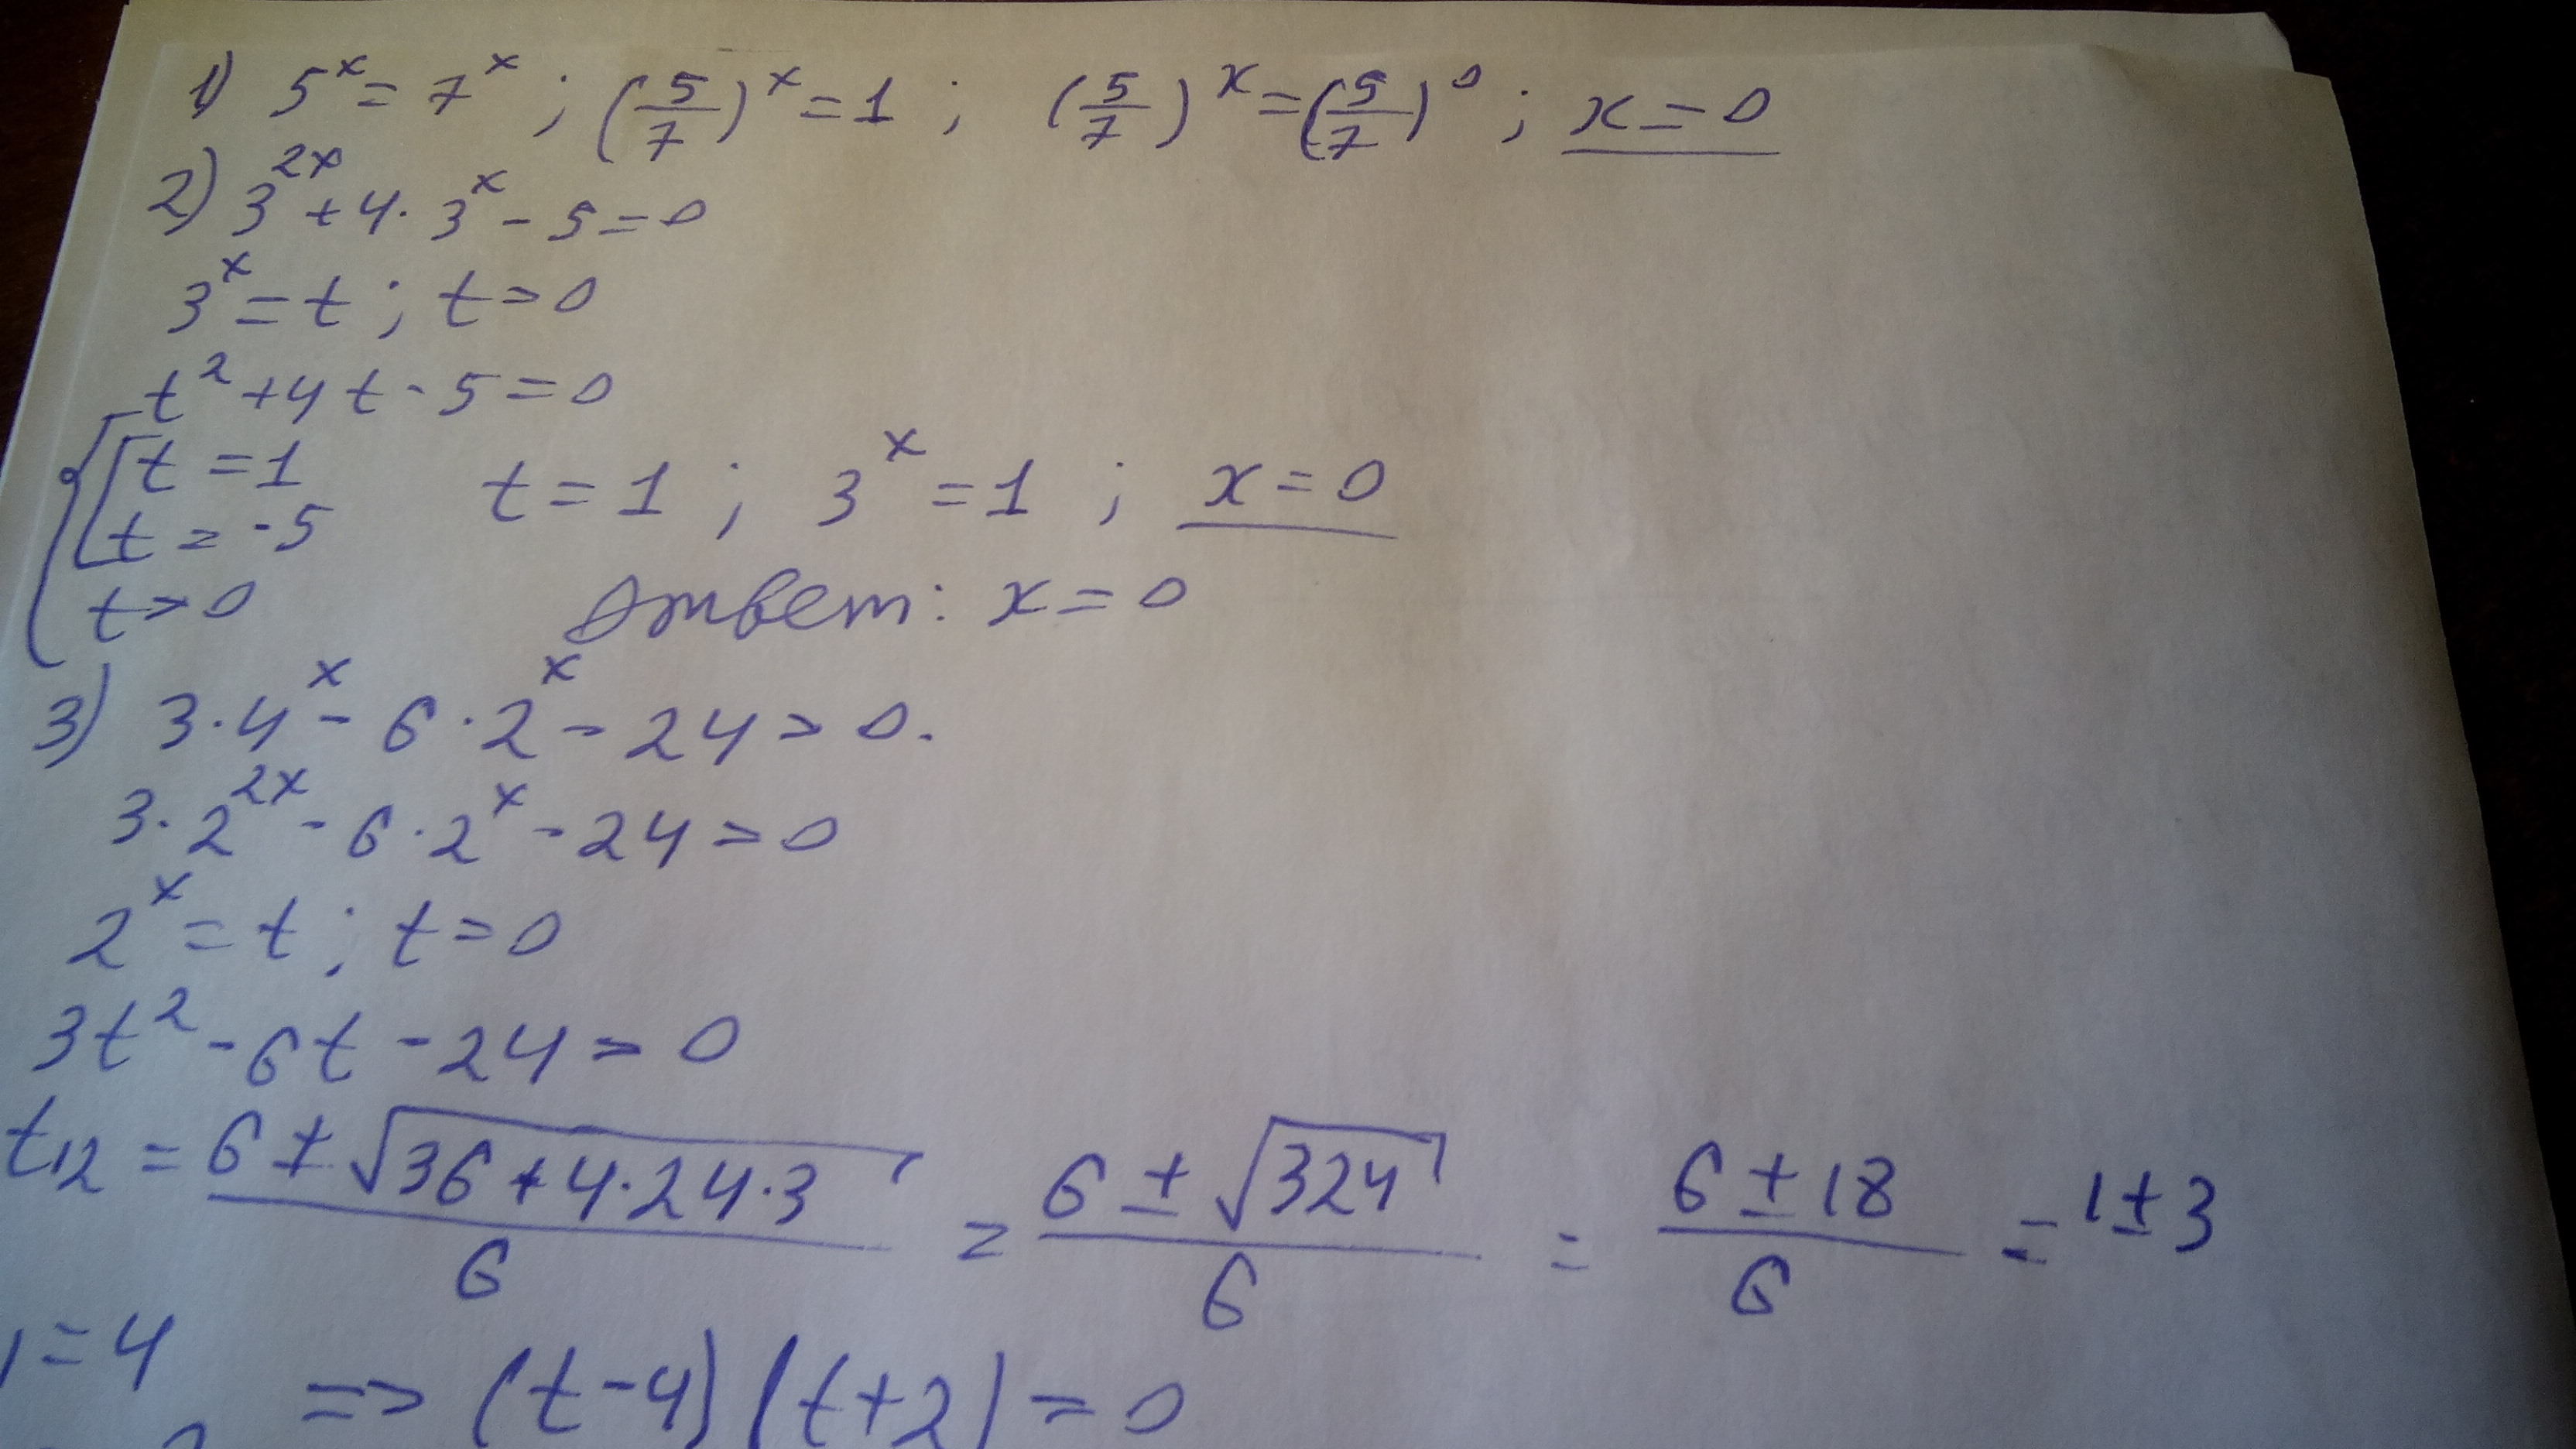 1) 5^x = 7^x ; (5/7)^x = 1 ; (5/7)^x = (5/7)^0 ; x = 0
2) 3^2x + 4 · 3^x - 5 = 0
3^x = t ; t > 0
t^2 + 4t - 5 = 0
t = 1
t = -5
t > 0
t = 1 ; 3^x = 1 ; x = 0
Ответ: x = 0
3) 3 · 4^x - 6 · 2^x - 24 > 0.
3 · 2^2x - 6 · 2^x - 24 > 0
2^x = t ; t > 0
3t^2 - 6t - 24 > 0
t12 = (6 ± √(36 + 4·24·3))/6 = (6 ± √324)/6 = (6 ± 18)/6 = 1 ± 3
1 = 4
=> (t-4)(t+2) > 0